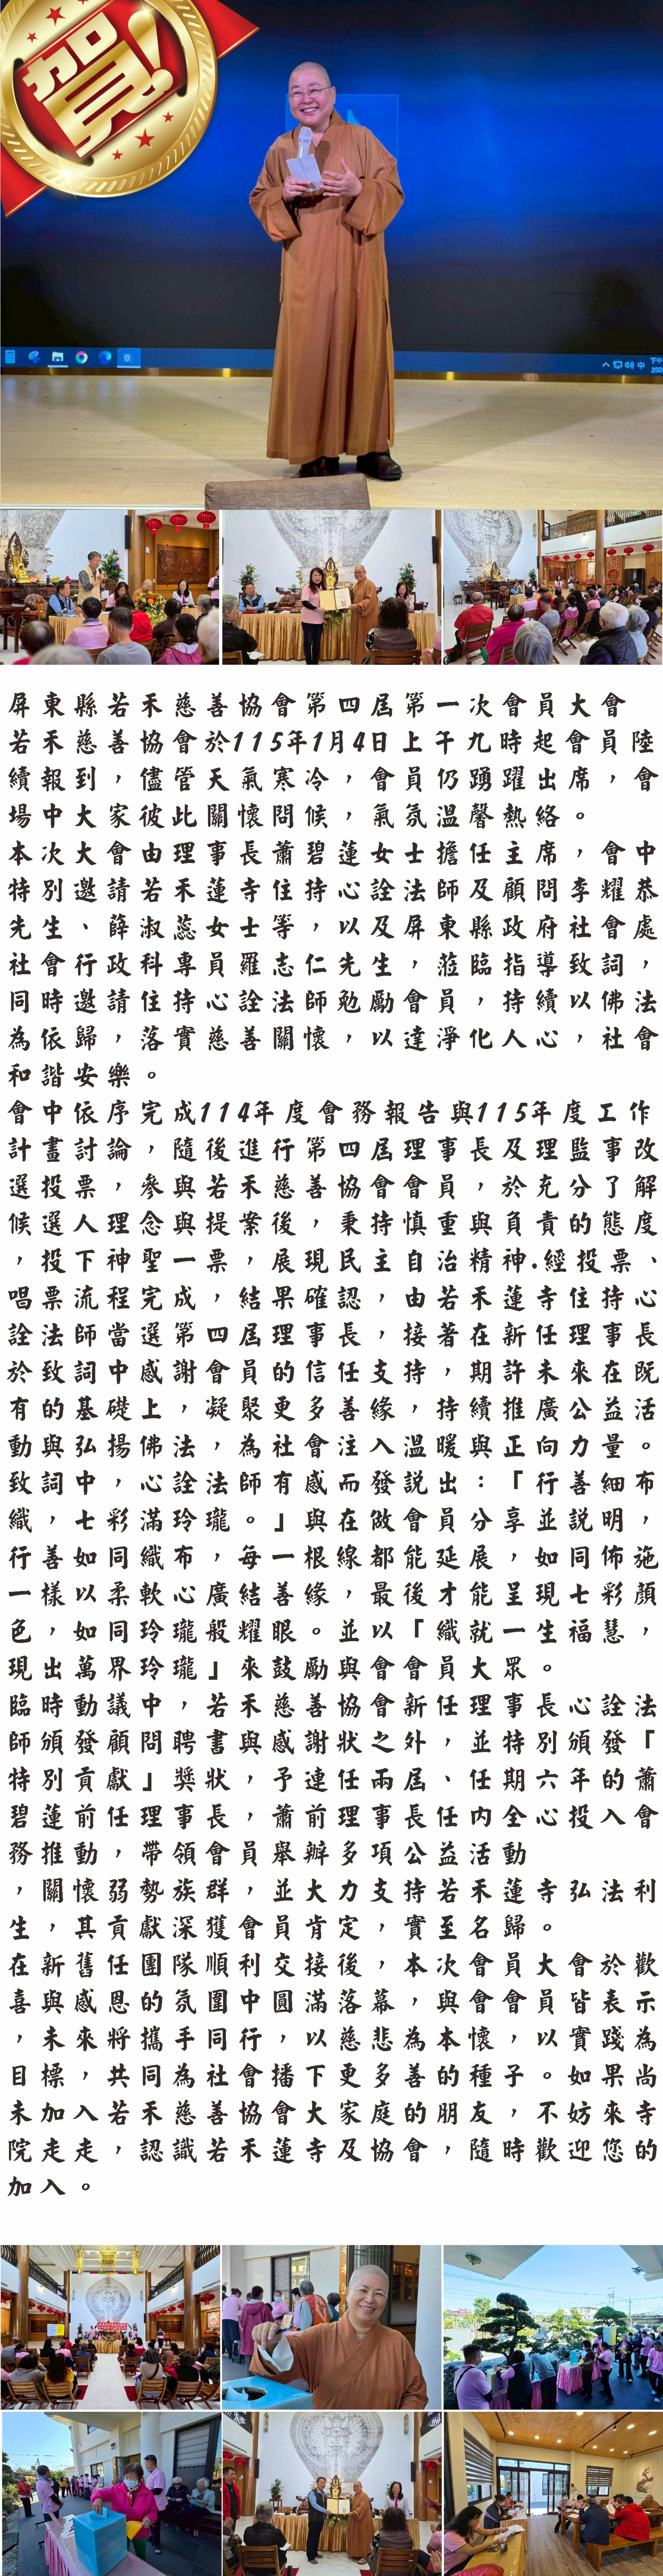 賀!
中
下午
屏東縣若禾慈善協會第四屆第一次會員大會
若禾慈善協會於115年1月4日上午九時起會員陸
續報到，儘管天氣寒冷，會員仍踴躍出席，會
場中大家彼此關懷問候，氣氛溫馨熱絡。
本次大會由理事長蕭碧蓮女士擔任主席，會中
特別邀請若禾蓮寺住持心詮法師及顧問李耀恭
先生、薛淑蕊女士等，以及屏東縣政府社會處
社會行政科專員羅志仁先生，蒞臨指導致詞，
同時邀請住持心詮法師勉勵會員，持續以佛法
為依歸，落實慈善關懷，以達淨化人心，社會
和諧安樂。
會中依序完成114年度會務報告與115年度工作
計畫討論，隨後進行第四屆理事長及理監事改
選投票，參與若禾慈善協會會員，於充分了解
候選人理念與提案後，秉持慎重與負責的態度
，投下神聖一票，展現民主自治精神.經投票、
唱票流程完成，結果確認，由若禾蓮寺住持心
詮法師當選第四屆理事長，接著在新任理事長
於致詞中感謝會員的信任支持，期許未來在既
有的基礎上，凝聚更多善緣，持續推廣公益活
動與弘揚佛法，為社會注入溫暖與正向力量。
致詞中，心詮法師有感而發說出：「行善細布
織，七彩滿玲瓏。」與在做會員分享並說明，
行善如同織布，每一根線都能延展，如同佈施
一樣以柔軟心廣結善緣，最後才能呈現七彩顏
色，如同玲瓏般耀眼。並以「織就一生福慧，
現出萬界玲瓏」來鼓勵與會會員大眾。
臨時動議中，若禾慈善協會新任理事長心詮法
師頒發顧問聘書與感謝狀之外，並特別頒發「
特別貢獻」獎狀，予連任兩屆、任期六年的蕭
碧蓮前任理事長，蕭前理事長任內全心投入會
務推動，帶領會員舉辦多項公益活動
，關懷弱勢族群，並大力支持若禾蓮寺弘法利
生，其貢獻深獲會員肯定，實至名歸。
在新舊任團隊順利交接後，本次會員大會於歡
喜與感恩的氛圍中圓滿落幕，與會會員皆表示
，未來將攜手同行，以慈悲為本懷，以實踐為
目標，共同為社會播下更多善的種子。如果尚
未加入若禾慈善協會大家庭的朋友，不妨來寺
院走走，認識若禾蓮寺及協會，隨時歡迎您的
加入。